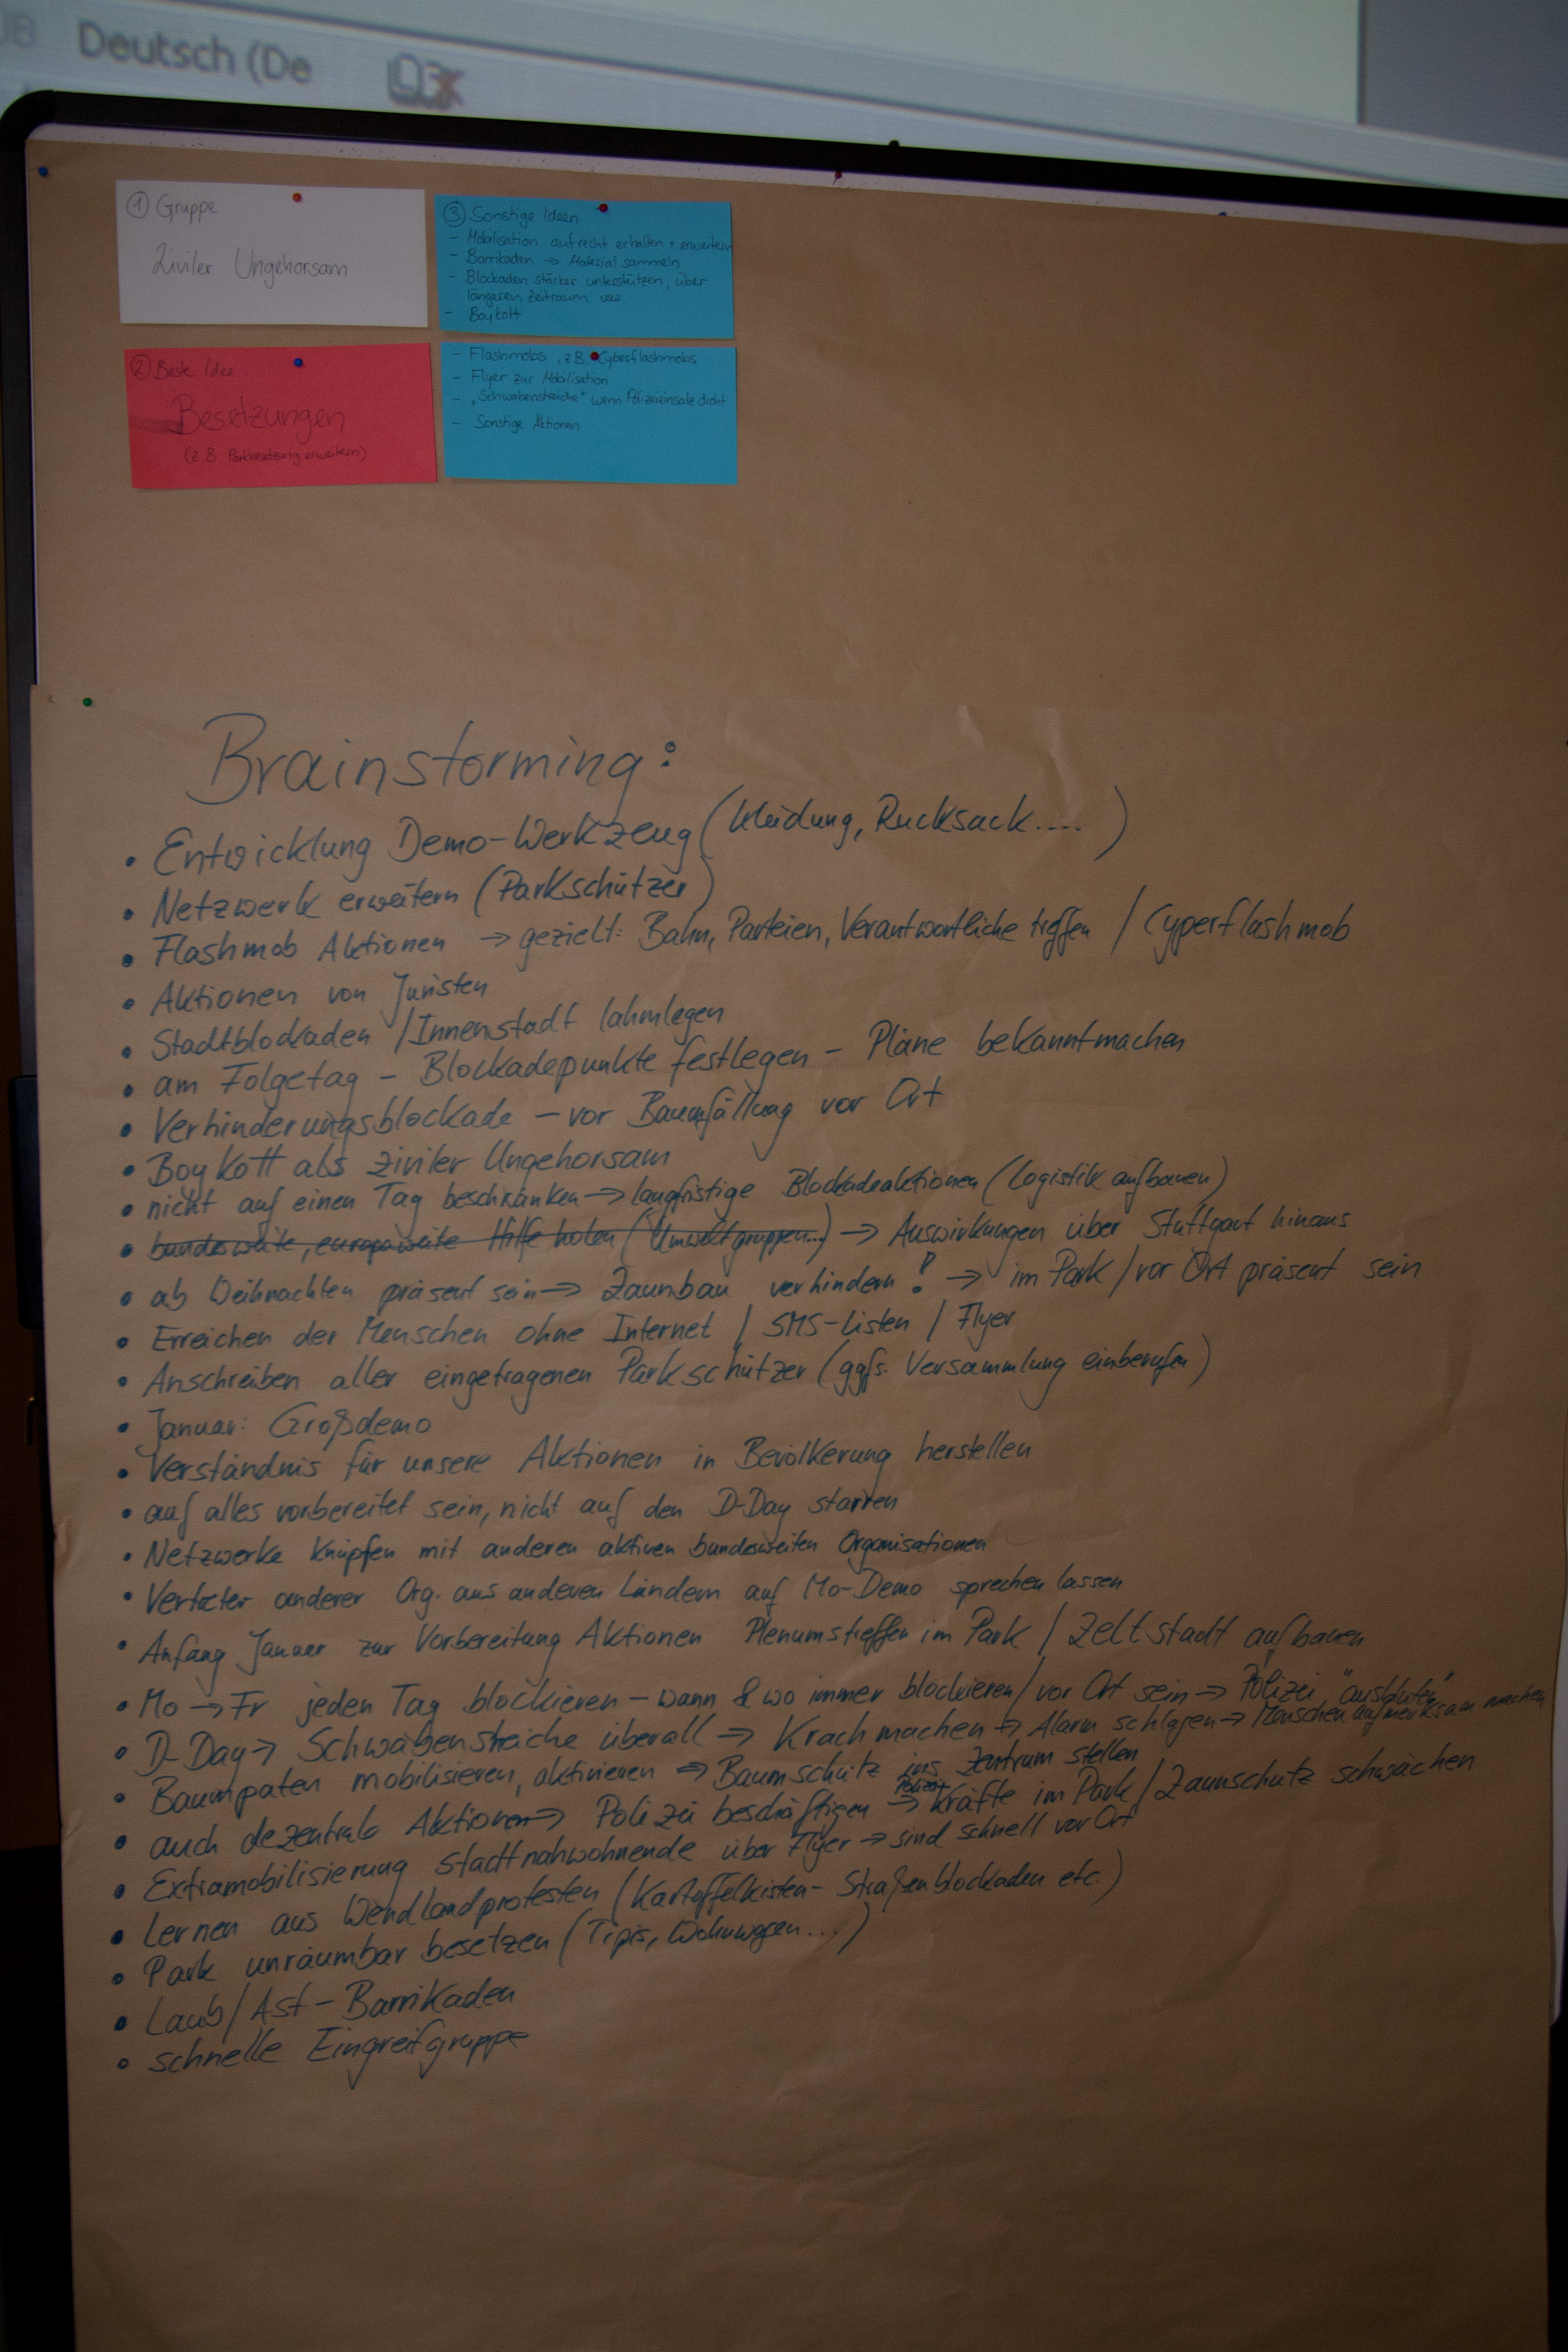 Deutsch (De
① Gruppe
Ziviler Ungehorsam
② Beste Idee
Besetzungen
(z.B. Parkbesetzung erweitern)
③ Sonstige Ideen
- Mobilisation aufrecht erhalten + erweitern
- Barrikaden → Material sammeln
- Blockaden stärker unterstützen, über
längeren Zeitraum usw.
- Boykott
- Flashmobs, z.B. Cyberflashmobs
- Flyer zur Mobilisation
- „Schwabenstreiche" wenn Polizeieinsatz droht
- Sonstige Aktionen
Brainstorming:
• Entwicklung Demo-Werkzeug (Kleidung, Rucksack....)
• Netzwerk erweitern (Parkschützer)
• Flashmob Aktionen → gezielt: Bahn, Parteien, Verantwortliche treffen / Cyperflashmob
• Aktionen von Juristen
• Stadtblockaden / Innenstadt lahmlegen
• am Folgetag - Blockadepunkte festlegen - Pläne bekanntmachen
• Verhinderungsblockade - vor Baumfällung vor Ort
• Boykott als ziviler Ungehorsam
• nicht auf einen Tag beschränken → langfristige Blockadeaktionen (Logistik aufbauen)
• bundesweite, europaweite Hilfe holen (Umweltgruppen...) → Auswirkungen über Stuttgart hinaus
• ab Weihnachten präsent sein → Zaunbau verhindern! → im Park / vor Ort präsent sein
• Erreichen der Menschen ohne Internet / SMS-Listen / Flyer
• Anschreiben aller eingetragenen Parkschützer (ggfs. Versammlung einberufen)
• Januar: Großdemo
• Verständnis für unsere Aktionen in Bevölkerung herstellen
• auf alles vorbereitet sein, nicht auf den D-Day starren
• Netzwerke knüpfen mit anderen aktiven bundesweiten Organisationen
• Vertreter anderer Org. aus anderen Ländern auf Mo-Demo sprechen lassen
• Anfang Januar zur Vorbereitung Aktionen Plenumstreffen im Park / Zeltstadt aufbauen
• Mo → Fr jeden Tag blockieren - wann & wo immer blockieren / vor Ort sein → Polizei "ausbluten"
• D-Day → Schwabenstreiche überall → Krach machen → Alarm schlagen → Menschen aufmerksam machen
• Baumpaten mobilisieren, aktivieren → Baumschutz ins Zentrum stellen
• auch dezentrale Aktionen → Polizei beschäftigen → Polizei Kräfte im Park / Zaunschutz schwächen
• Extramobilisierung stadtnahwohnende über Flyer → sind schnell vor Ort
• Lernen aus Wendlandprotesten (Kartoffelkisten- Straßenblockaden etc.)
• Park unräumbar besetzen (Tipis, Wohnwagen...)
• Laub / Ast - Barrikaden
• schnelle Eingreifgruppe